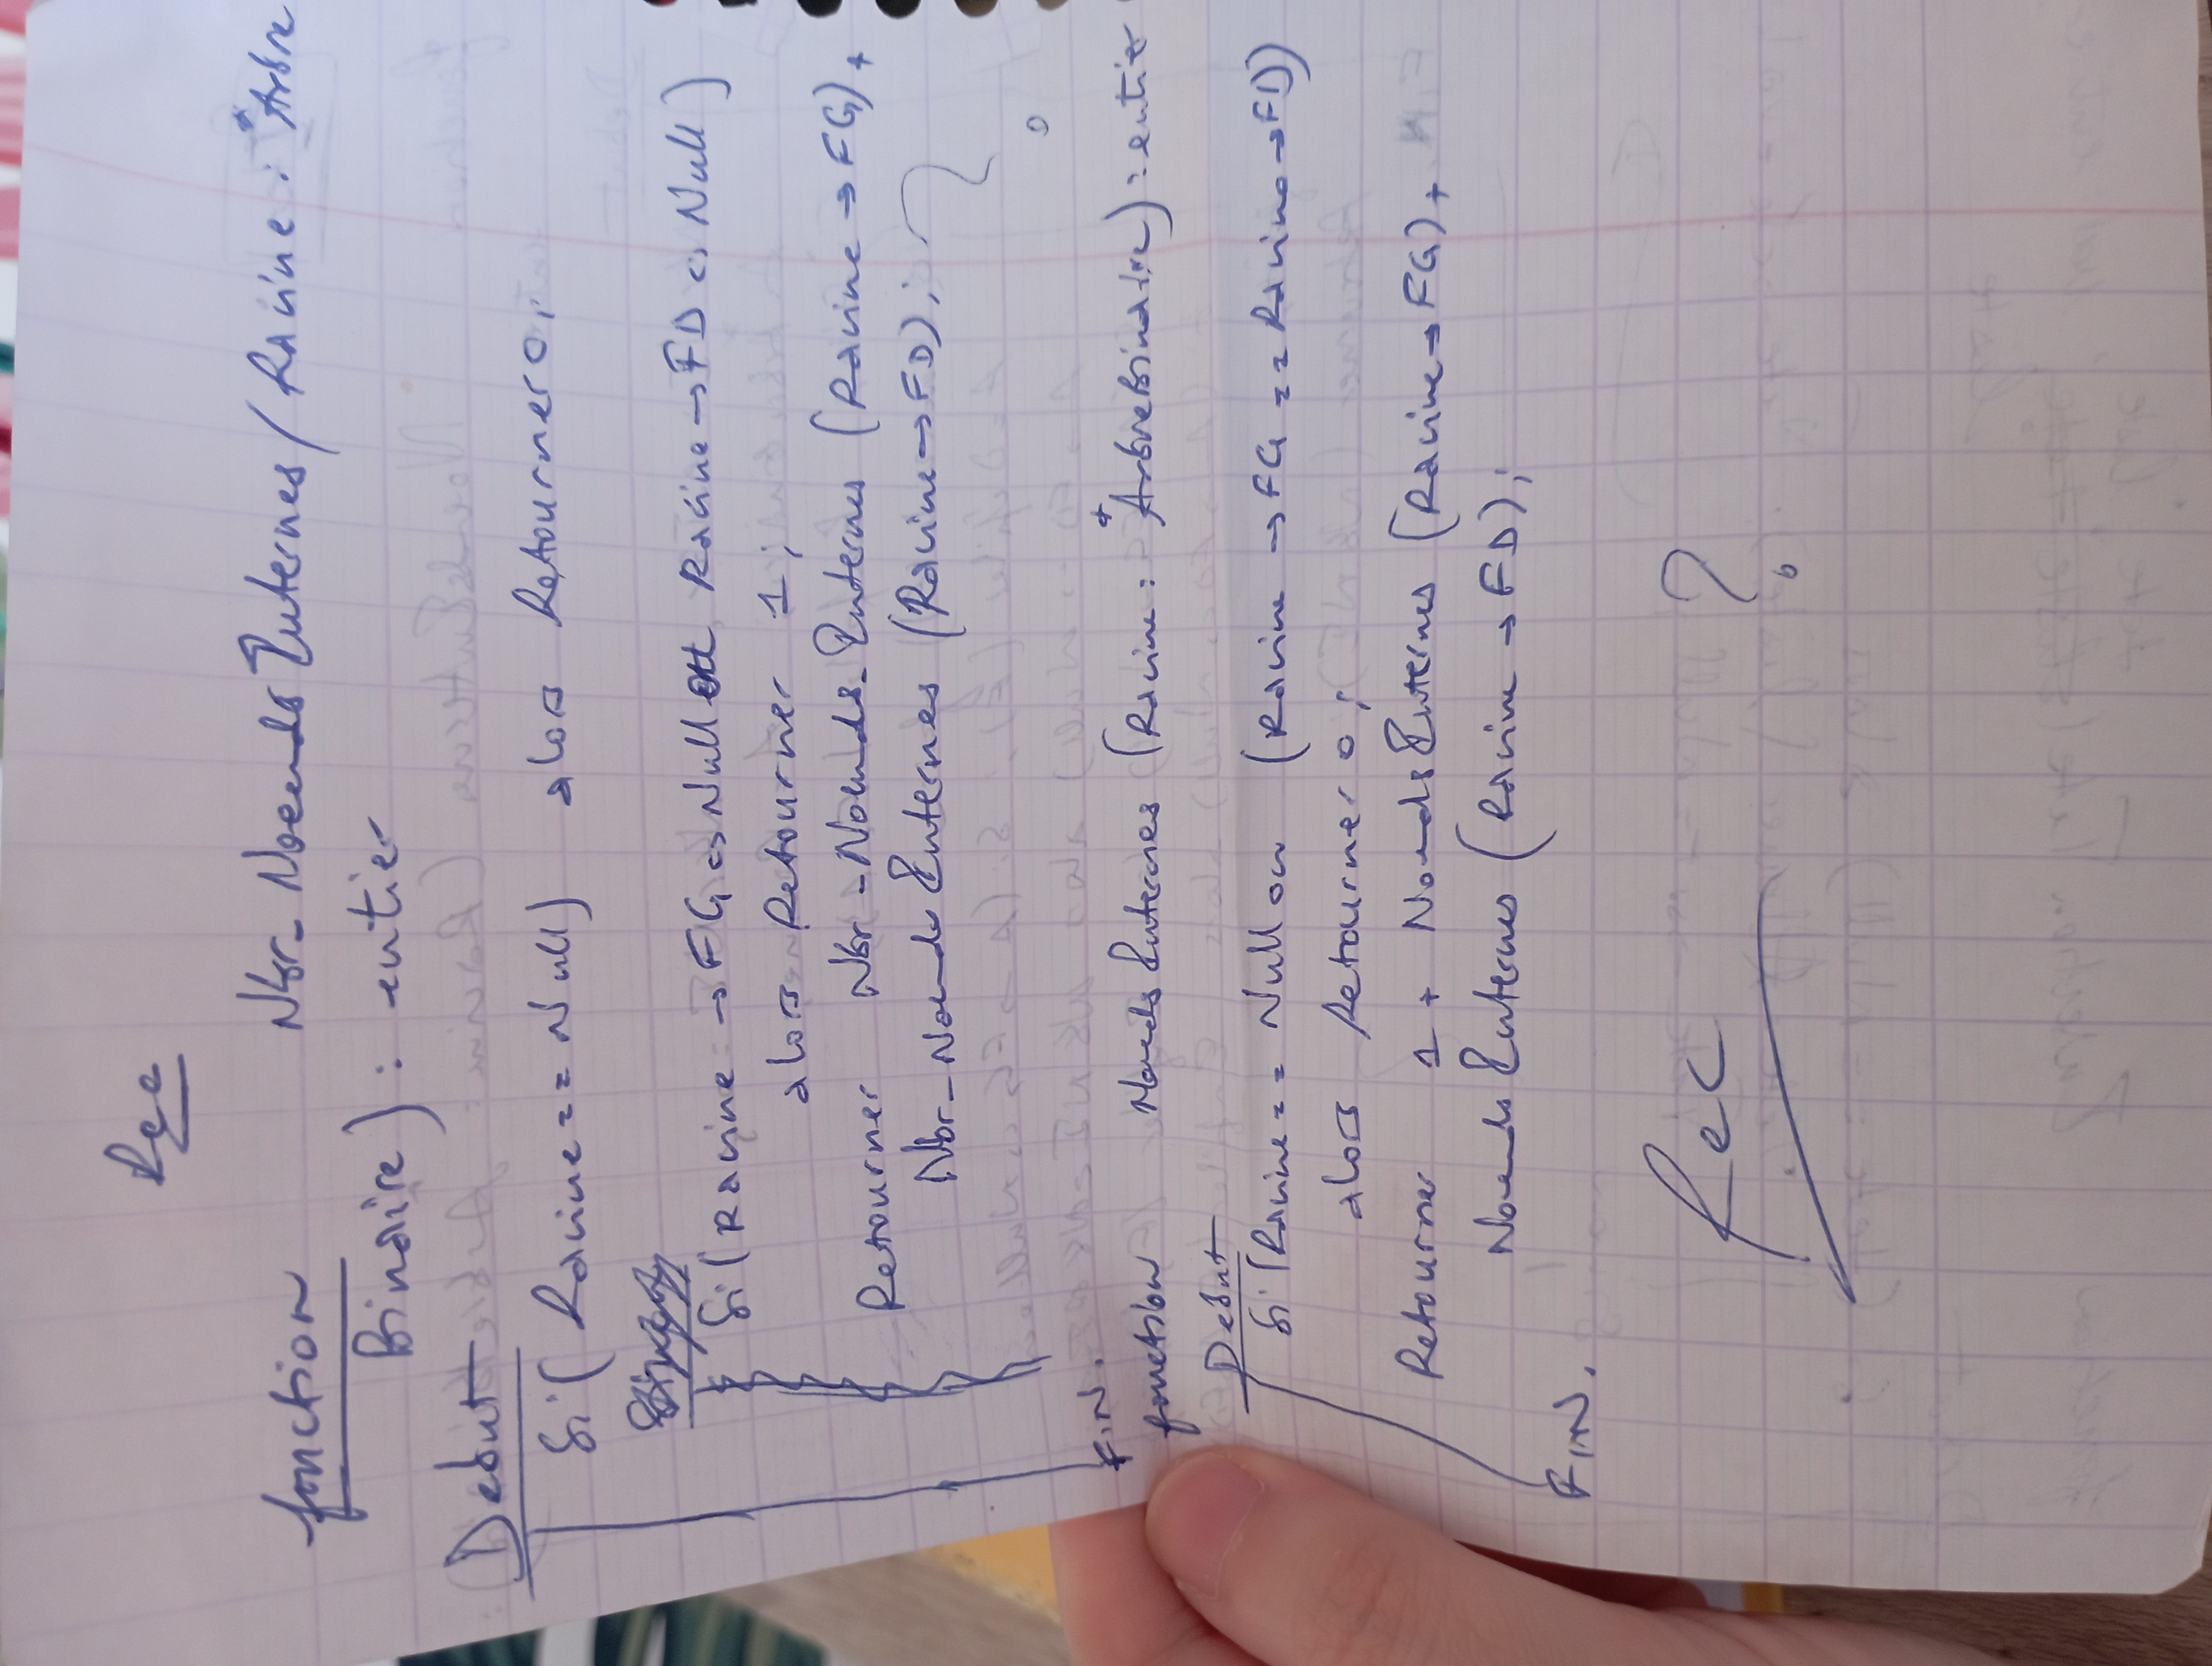 Rec
fonction Nbr_Noeuds Internes (Racine : *Arbre
Binaire) : entier
Debut
Si (Racine == Null) alors Retourner 0;
Si (Racine → FG <> Null ou Racine → FD <> Null)
alors Retourner 1;
Retourner Nbr_Noeuds_Internes (Racine → FG) +
Nbr_Noeuds Internes (Racine → FD); ?
FIN.
fonction Noeuds Internes (Racine : *ArbreBinaire) : entier
Debut
Si (Racine == Null ou (Racine → FG == Racine → FD))
alors Retourner 0;
Retourner 1 + Noeuds Internes (Racine → FG) +
Noeuds Internes (Racine → FD);
FIN.
Rec ?